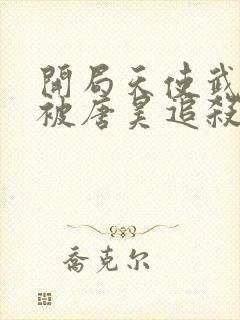 開局天使武
被唐昊追殺
喬克尔